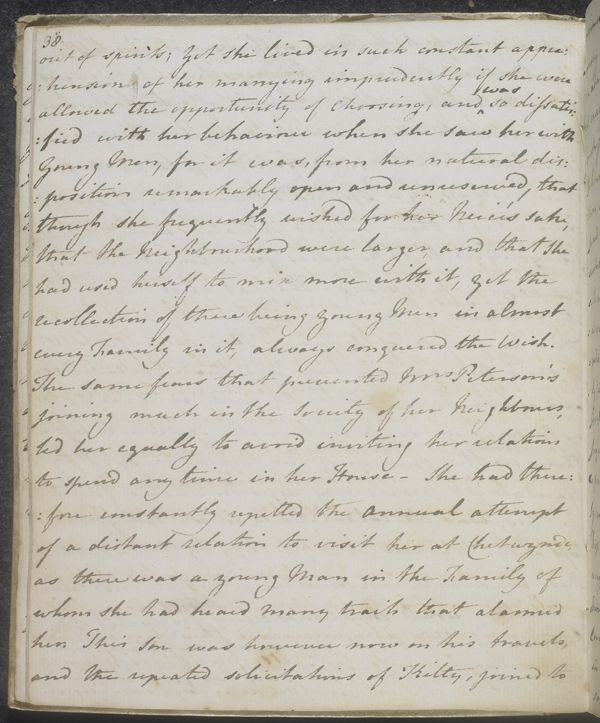 38
out of spirits; yet she lived in such constant appre:
:hension of her marrying imprudently if she were
allowed the opportunity of choosing, and was so dissatis:
:fied with her behaviour when she saw her with
Young Men, for it was, from her natural dis:
:position remarkably open and unreserved, that
though she frequently wished for her Neice's sake,
that the Neighbourhood were larger, and that She
had used herself to mix more with it, yet the
recollection of there being young Men in almost
every Family in it, always conquered the Wish.
The same fears that prevented Mrs Peterson's
joining much in the Society of her Neighbours,
led her equally to avoid inviting her relations
to spend any time in her House - She had there:
:fore constantly repelled the annual attempt
of a distant relation to visit her at Chetwynde,
as there was a young Man in the Family of
whom she had heard many traits that alarmed
her. This Son was however now on his travels,
and the repeated solicitations of Kitty, joined to